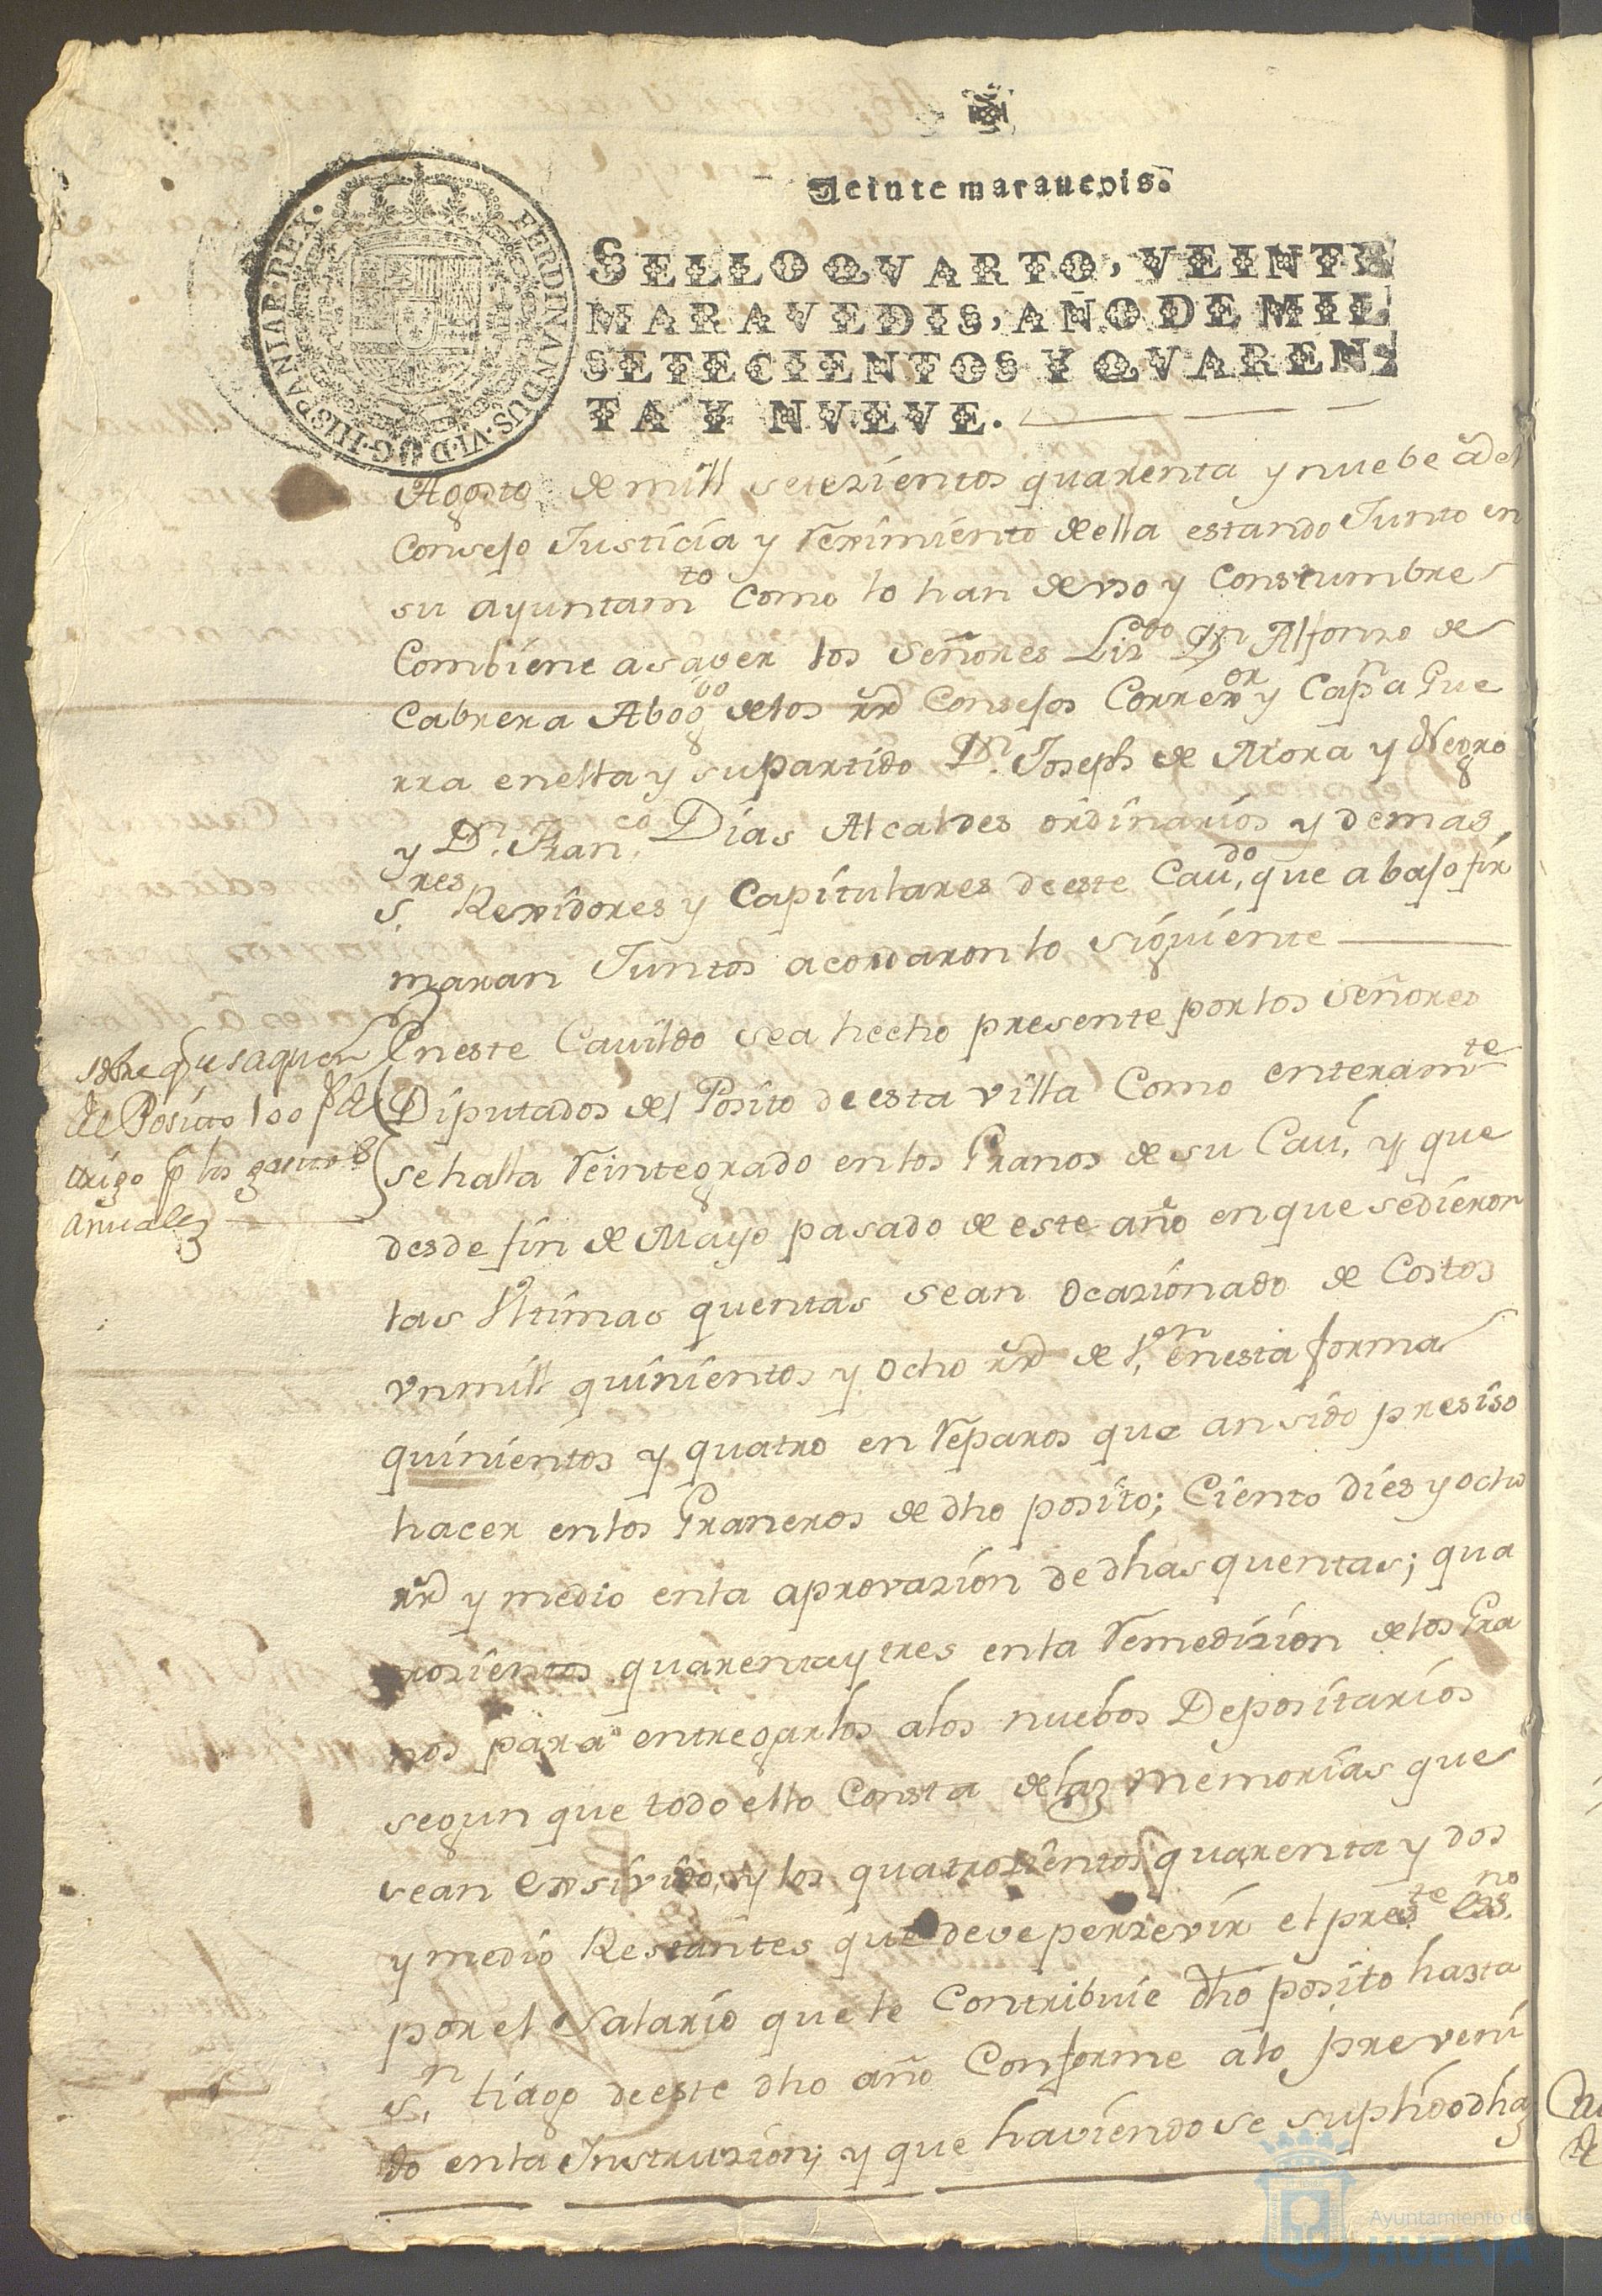 Veinte maravedis.
SELLO QVARTO, VEINTE
MARAVEDIS, AÑO DE MIL
SETECIENTOS Y QVAREN-
TA Y NVEVE.
FERDINANDUS·VI·D·G·HISPANIAR·REX·
Agosto de mill setezientos quarenta y nuebe el
Consejo Justicia y Reximiento de ella estando Junto en
su ayuntamto como lo han de vso y Constumbre
Combiene a saver los señores Lizdo Dn Alfonzo de
Cabrera Abogdo de los rrs Consejos Correxor y Capn a Gue
rra en ella y su partido Dn. Joseph de Mora y Negro
y Dn. Franco. Dias Alcaldes ordinarios y demas
S.res Rexidores y Capitulares de este Cavdo, que abajo fir
maran Juntos acordaron lo siguiente
sobre que saquen
del Posito 100 fs de
trigo pa los gastos
Anuales
En este Cavildo sea hecho presente por los señores
Diputados del Posito de esta villa Como enteramte
se halla Reintegrado en los Granos de su Cau, y que
desde fin de Mayo pasado de este año en que se dieron
las Vltimas quentas sean Ocazionado de Costos
vn mill quinientos y ocho rrs de Von en esta forma
quinientos y quatro en Reparos que an sido presiso
hacer en los Graneros de dho posito; Ciento dies y ocho
rrs y medio en la aprovazion de dhas quentas; qua
trozientos quarenta y tres en la Remedizion de los Gra
nos para entregarlos a los nuebos Depositarios
segun que todo ello Consta de las memorias que
sean exsivido, y los quatrozientos quarenta y dos
y medio Restantes que deve perzevir el preste essno.
por el Salario que le Contribuie dho posito hasta
Sn. tiago de este dho año Conforme a lo preveni
do en la Instruzion; y que haviendose suplido dhas
Ayuntamiento de
HUELVA